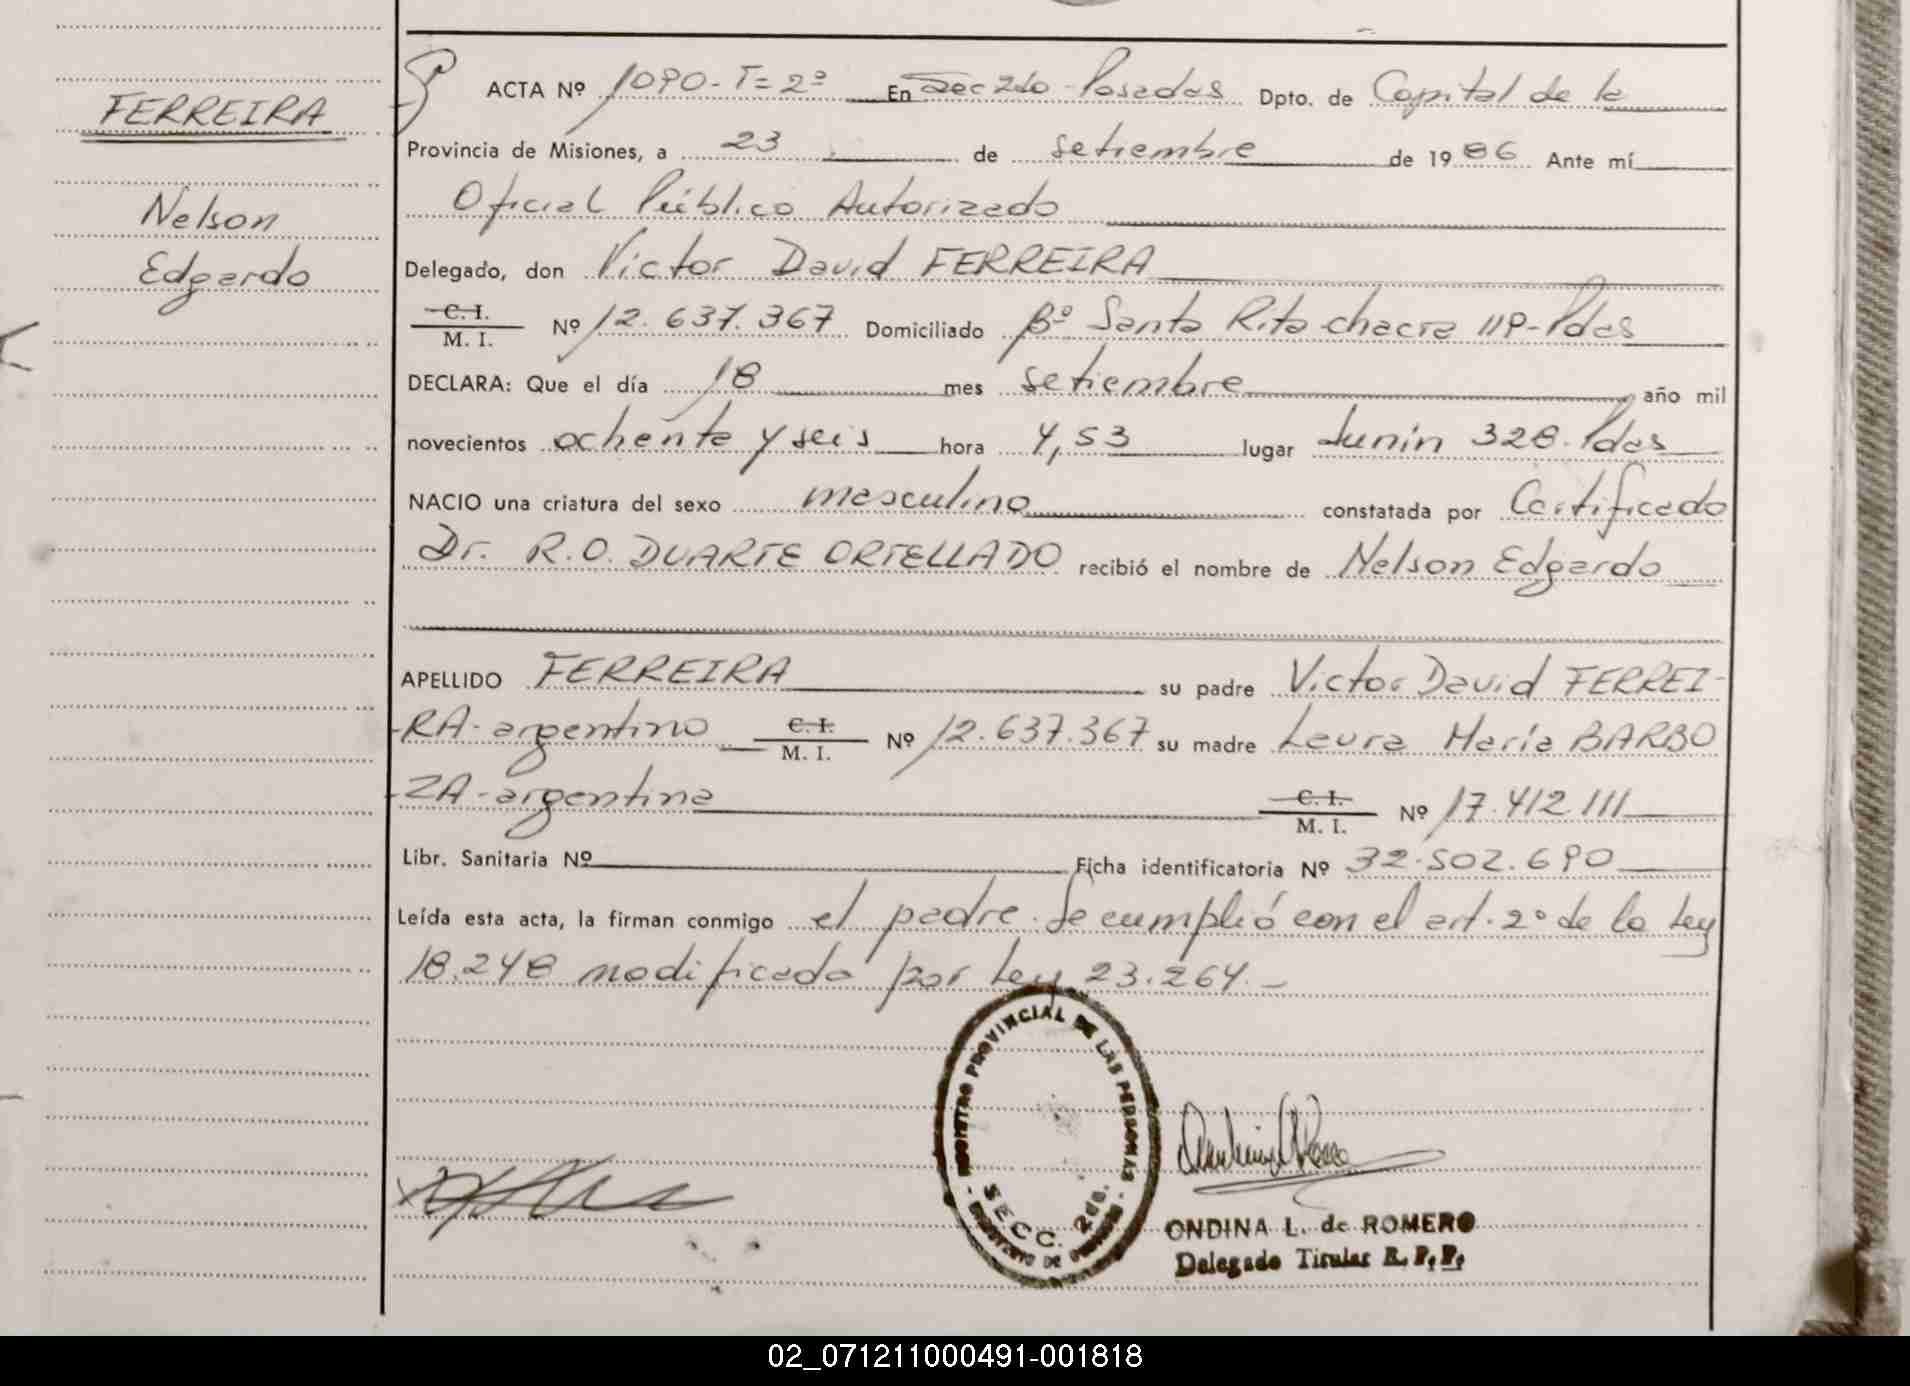 FERREIRA
Nelson
Edgardo
ACTA Nº 1090-T=2º En Secc 2da Posadas Dpto. de Capital de la
Provincia de Misiones, a 23 de setiembre de 1986 Ante mí
Oficial Público Autorizado
Delegado, don Victor David FERREIRA
C. I.
M. I. Nº 12.637.367 Domiciliado Bº Santa Rita chacra 119-Pdas
DECLARA: Que el día 18 mes setiembre año mil
novecientos ochenta y seis hora 4,53 lugar Junin 328-Pdas
NACIO una criatura del sexo masculino constatada por Certificado
Dr. R.O. DUARTE ORTELLADO recibió el nombre de Nelson Edgardo
APELLIDO FERREIRA su padre Victor David FERREI-
RA-argentino C. I. M. I. Nº 12.637.367 su madre Laura María BARBO
ZA-argentina C. I. M. I. Nº 17.412.111
Libr. Sanitaria Nº Ficha identificatoria Nº 32.502.690
Leída esta acta, la firman conmigo el padre. Se cumplió con el art. 2º de la Ley
18.248 modificada por Ley 23.264.-
REGISTRO PROVINCIAL DE LAS PERSONAS
SECC. 2da.
ONDINA L. de ROMERO
Delegado Titular R. P. P.
02_071211000491-001818